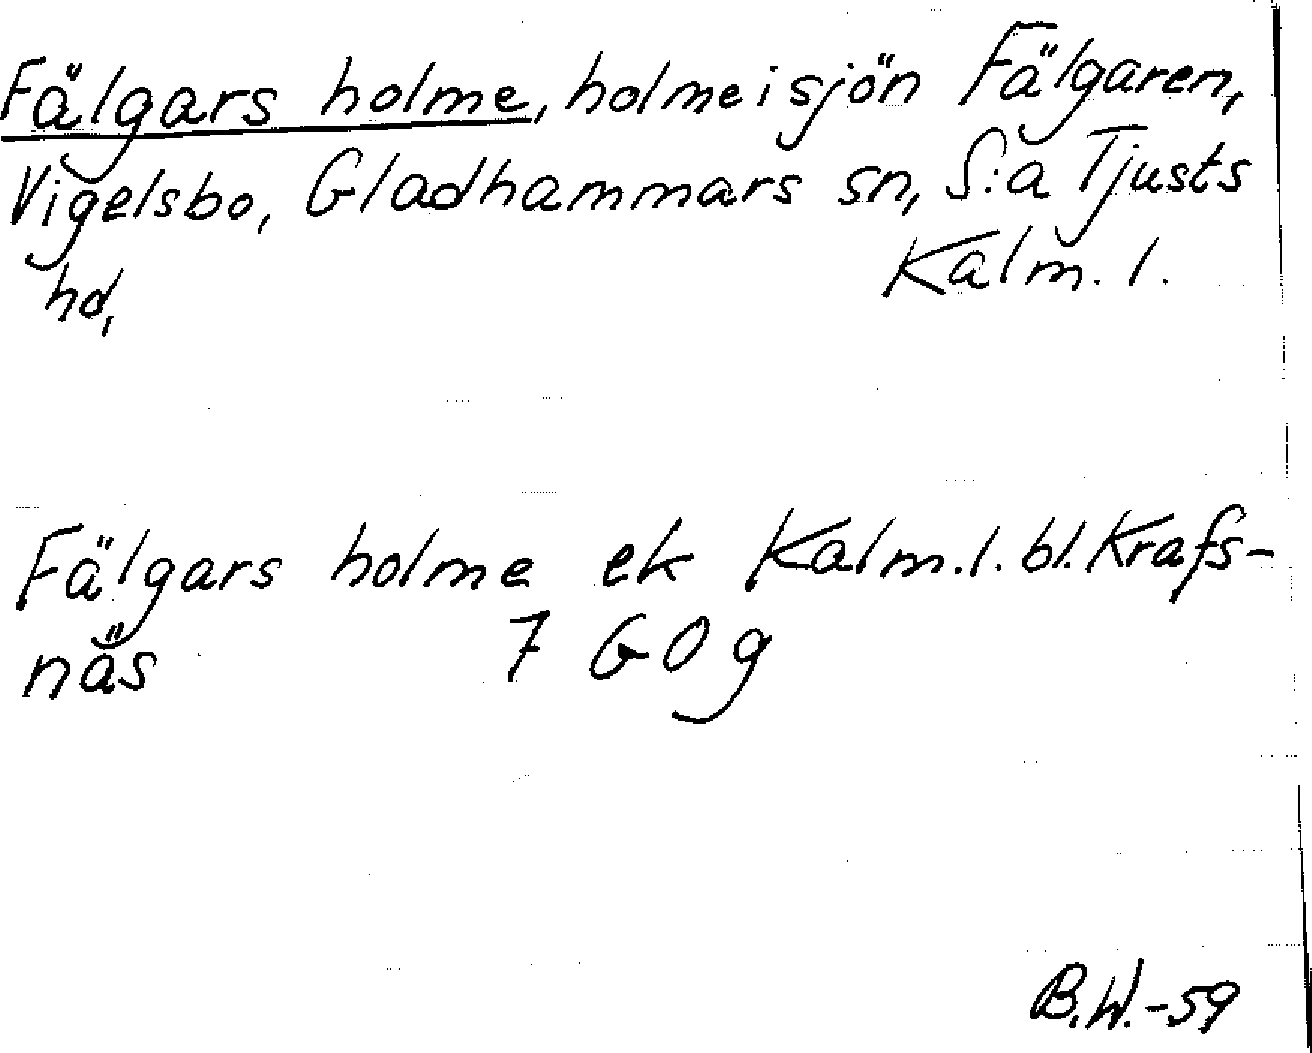 Fälgars holme, holme i sjön Fälgaren,
Vigelsbo, Gladhammars sn, S:a Tjusts
hd, Kalm. l.
Fälgars holme ek Kalm. l. bl. Krafs-
näs 7 G O g
B.W.-59